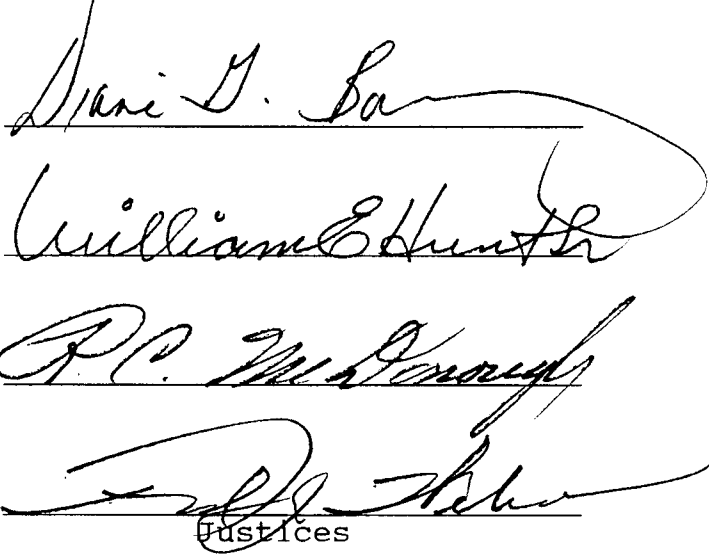 Diane G. Ba
William E Hunt Sr
R. C. McDonough
Justices